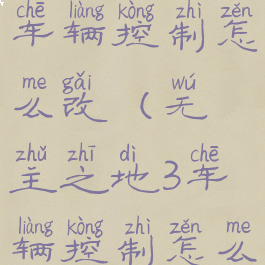 chē liàng kòng zhì zěn
车辆控制怎
me gǎi wú
么改（无
zhǔ zhī dì chē
主之地3车
liàng kòng zhì zěn me
辆控制怎么